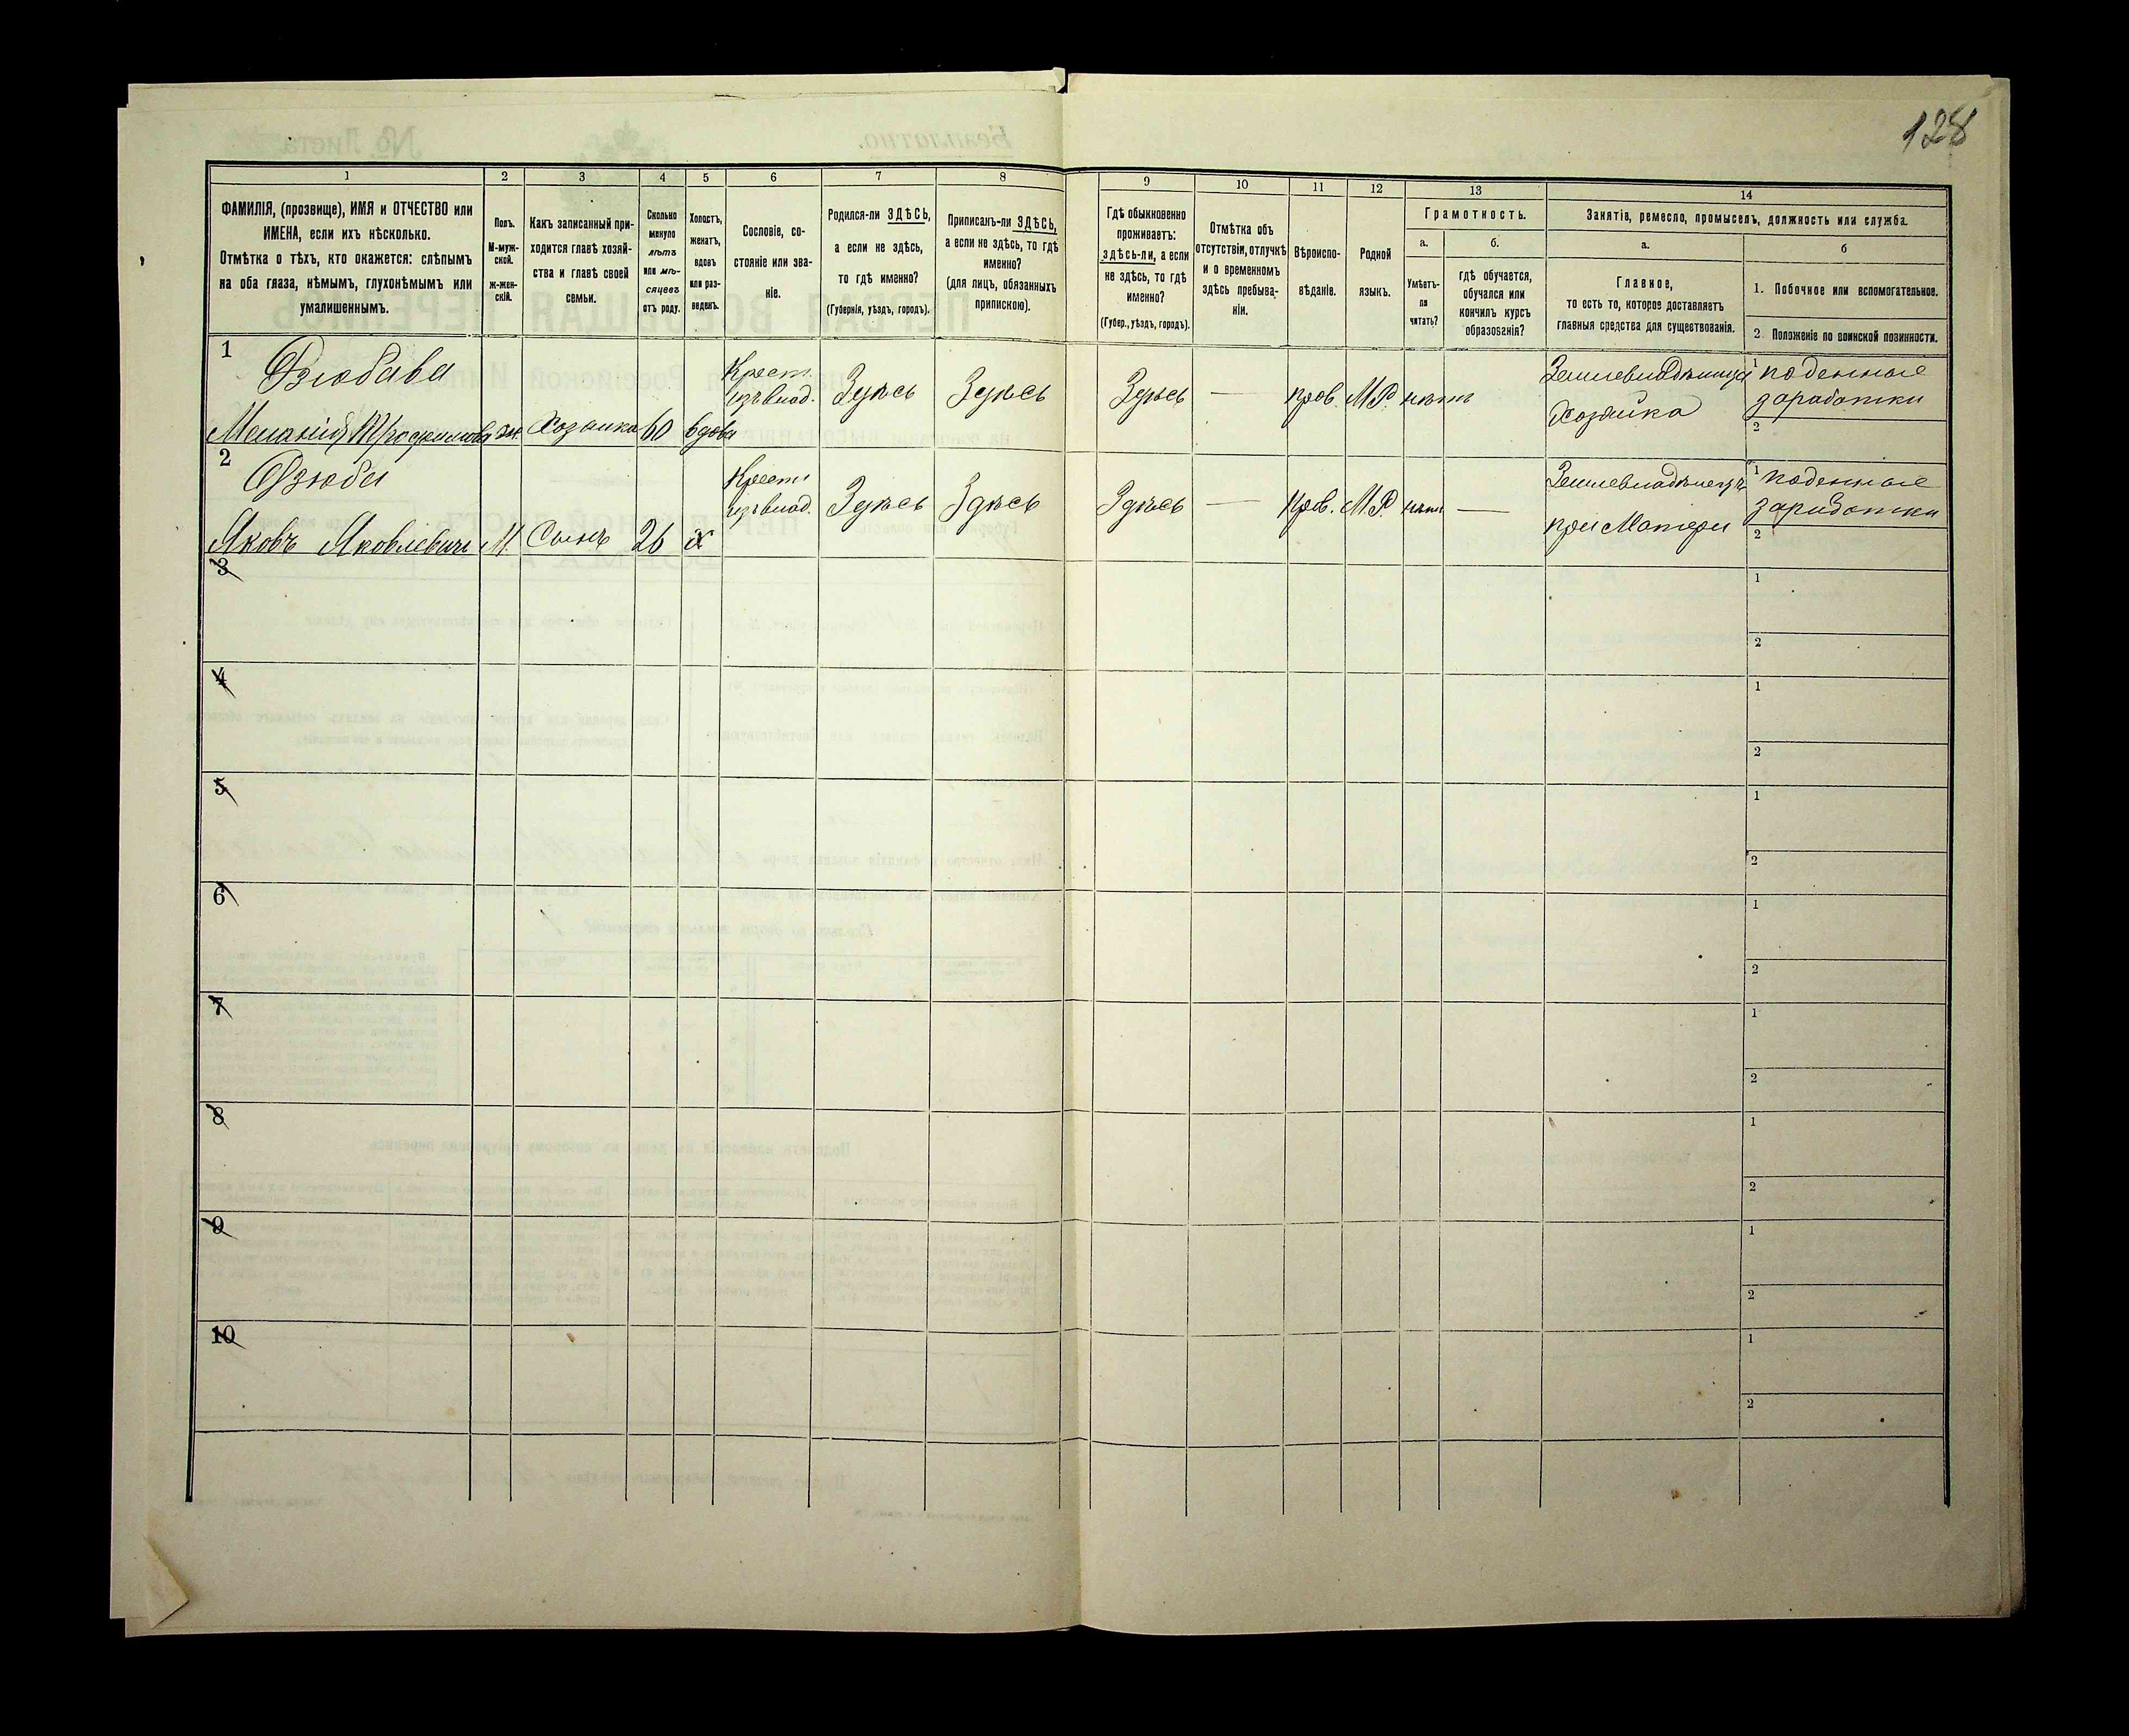 128
1
2
3
4
5
6
7
8
9
10
11
12
13
14
ФАМИЛІЯ, (прозвище), ИМЯ и ОТЧЕСТВО или
ИМЕНА, если ихъ нѣсколько.
Отмѣтка о тѣхъ, кто окажется: слѣпымъ
на оба глаза, нѣмымъ, глухонѣмымъ или
умалишеннымъ.
Полъ.
М-муж-
ской.
ж-жен-
скій.
Какъ записанный при-
ходится главѣ хозяй-
ства и главѣ своей
семьи.
Сколько
минуло
лѣтъ
или мѣ-
сяцевъ
отъ роду.
Холостъ,
женатъ,
вдовъ
или раз-
веденъ.
Сословіе, со-
стояніе или зва-
ніе.
Родился-ли ЗДѢСЬ,
а если не здѣсь,
то гдѣ именно?
(Губернія, уѣздъ, городъ).
Приписанъ-ли ЗДѢСЬ,
а если не здѣсь, то гдѣ
именно?
(для лицъ, обязанныхъ
припискою).
Гдѣ обыкновенно
проживаетъ:
здѣсь-ли, а если
не здѣсь, то гдѣ
именно?
(Губер., уѣздъ, городъ).
Отмѣтка объ
отсутствіи, отлучкѣ
и о временномъ
здѣсь пребыва-
ніи.
Вѣроиспо-
вѣданіе.
Родной
языкъ.
Грамотность.
а.
Умѣетъ-
ли
читать?
б.
гдѣ обучается,
обучался или
кончилъ курсъ
образованія?
Занятіе, ремесло, промыселъ, должность или служба.
а.
Главное,
то есть то, которое доставляетъ
главныя средства для существованія.
б
1. Побочное или вспомогательное.
2. Положеніе по воинской повинности.
1
Дзюбава
Меланія Трофимова
ж.
Хозяйка
60
вдова
Крест.
изъ влад.
Здѣсь
Здѣсь
Здѣсь
—
прав.
М.Р.
нѣтъ
Землевладѣлица
Хозяйка
1 поденные
заработки
2
2
Дзюба
Яковъ Яковлевичъ
М.
Сынъ
26
х
Крест
изъ влад.
Здѣсь
Здѣсь
Здѣсь
—
прав.
М.Р.
нѣтъ
—
Землевладѣлецъ
при Матери
1 поденные
заработки
2
3
1
2
4
1
2
5
1
2
6
1
2
7
1
2
8
1
2
9
1
2
10
1
2